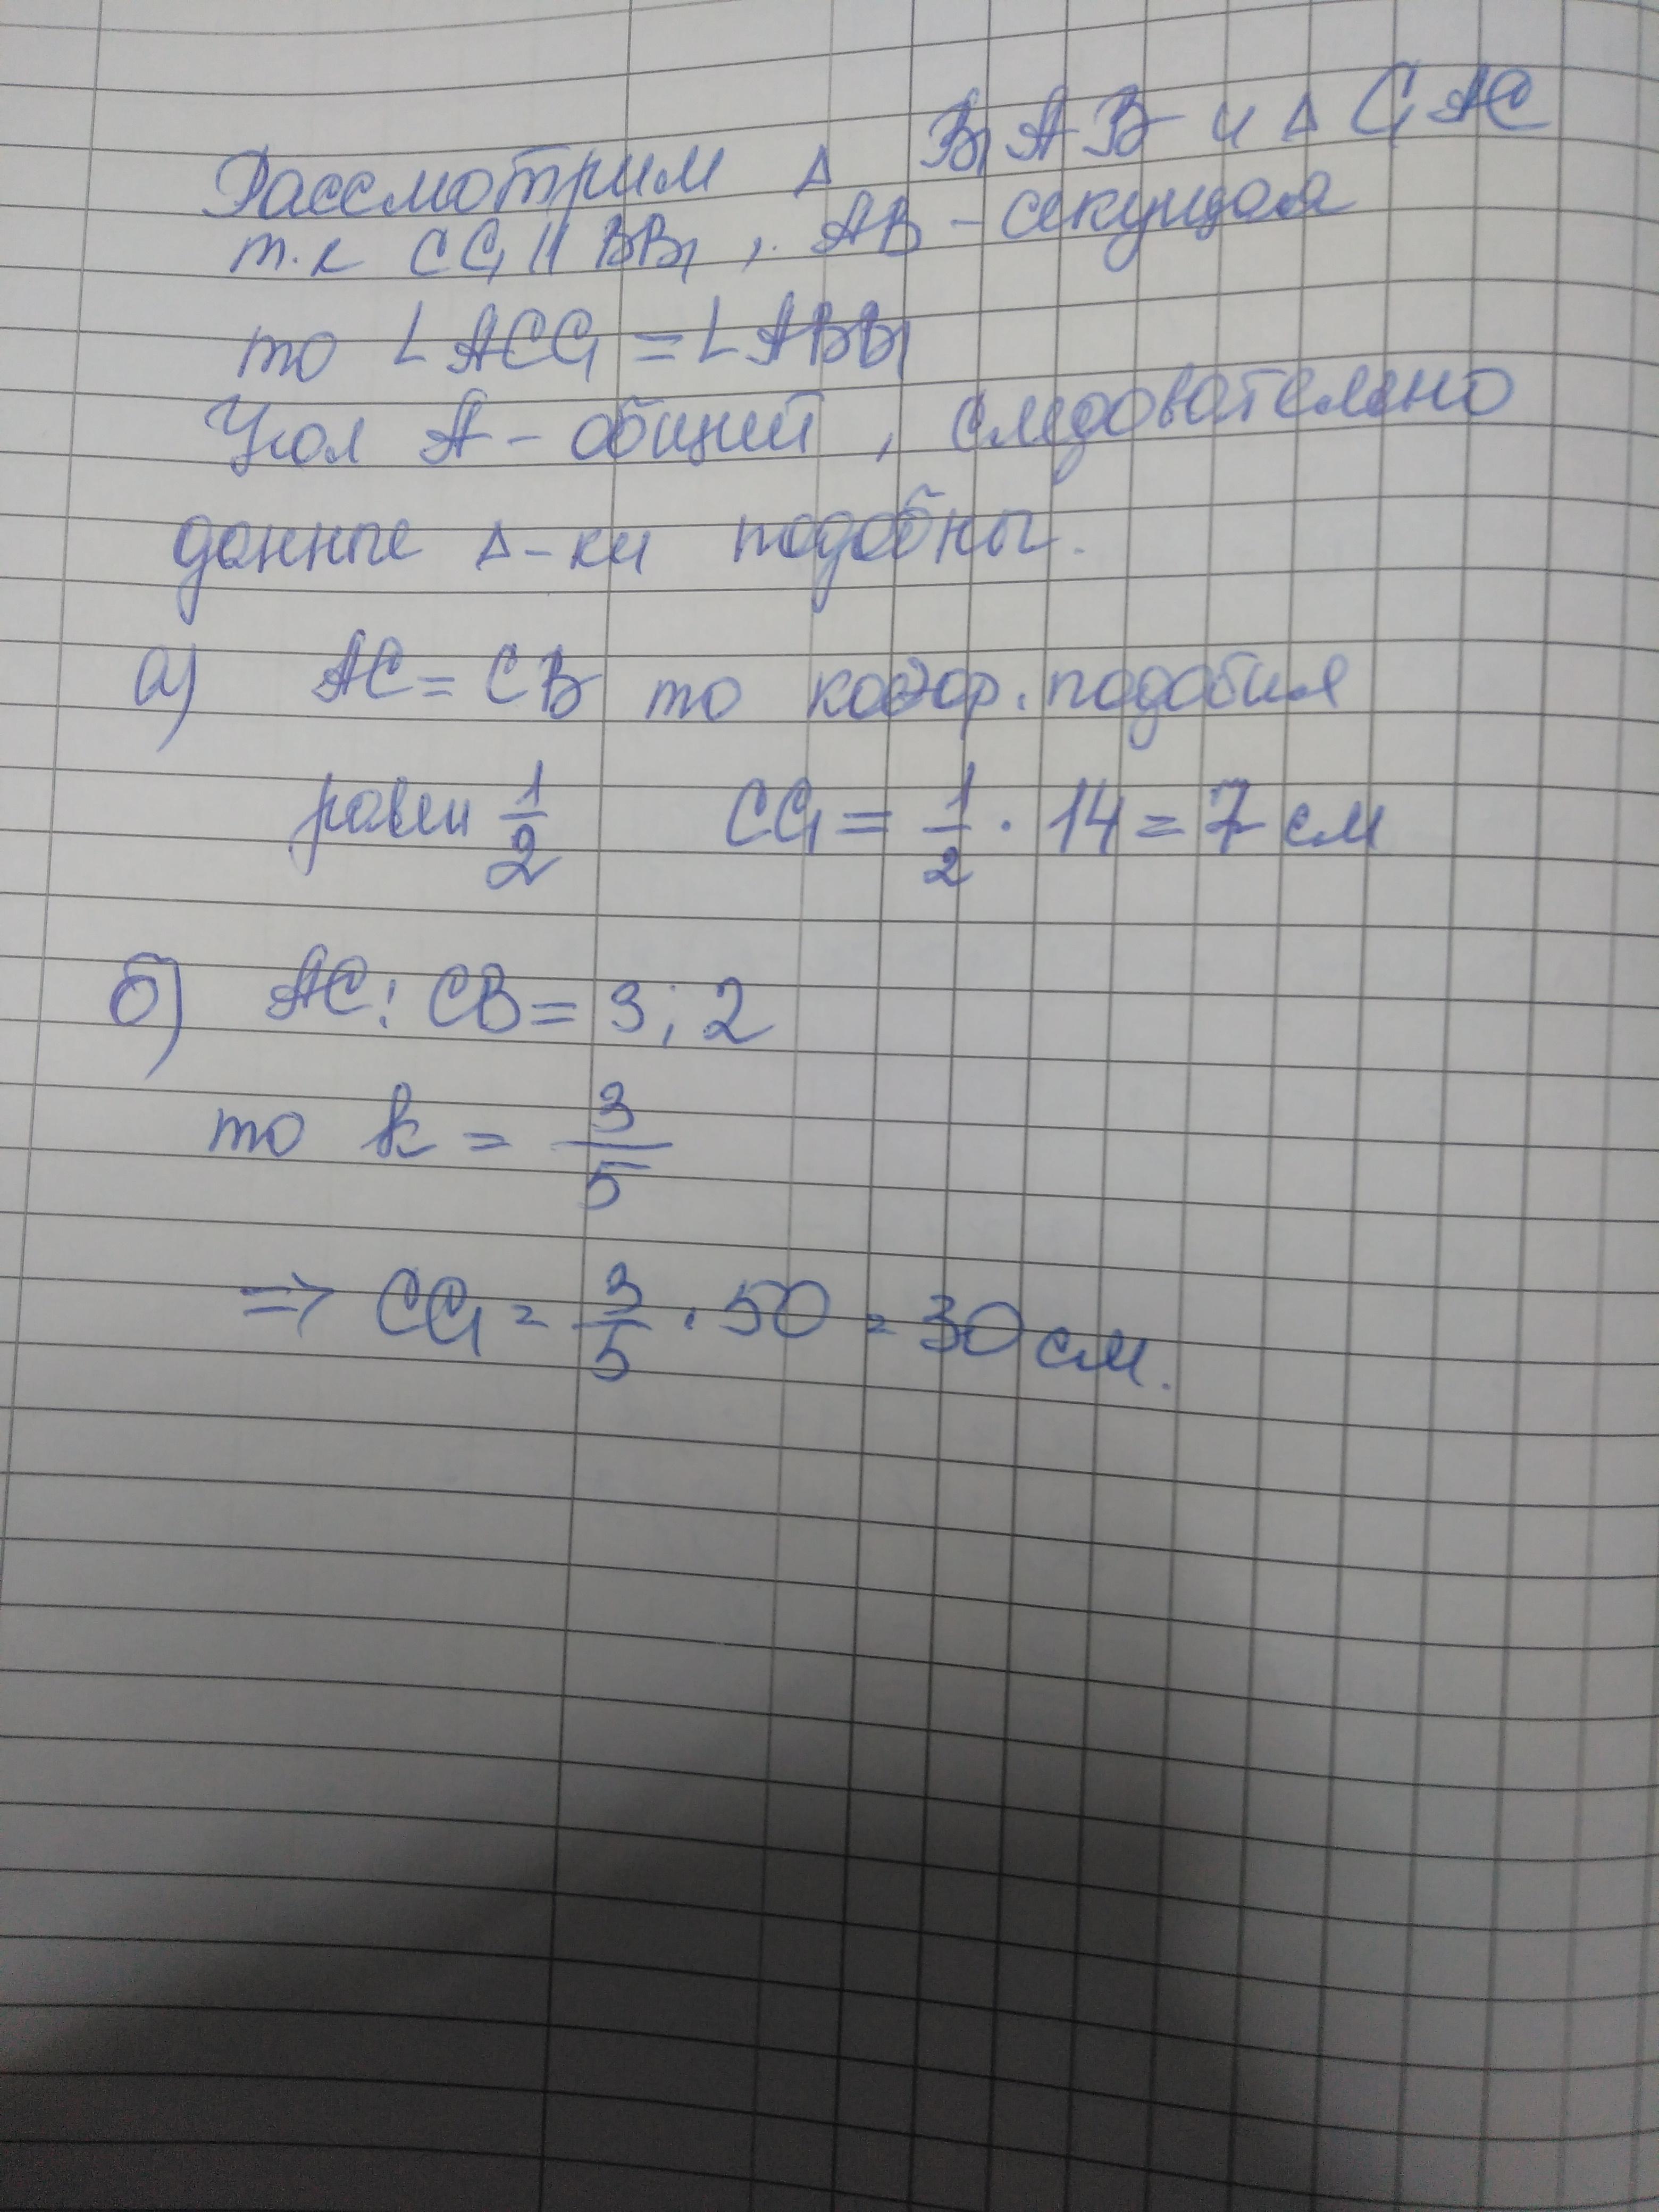 Рассмотрим Δ B₁AB и Δ C₁AC
т.к CC₁ || BB₁, AB - секущая
то ∠ACC₁ = ∠ABB₁
Угол A - общий, следовательно
данные Δ-ки подобны.
а) AC = CB то коэф. подобия
равен 1/2 CC₁ = 1/2 · 14 = 7 см
б) AC : CB = 3 ; 2
то k = 3/5
⇒ CC₁ = 3/5 · 50 = 30 см.